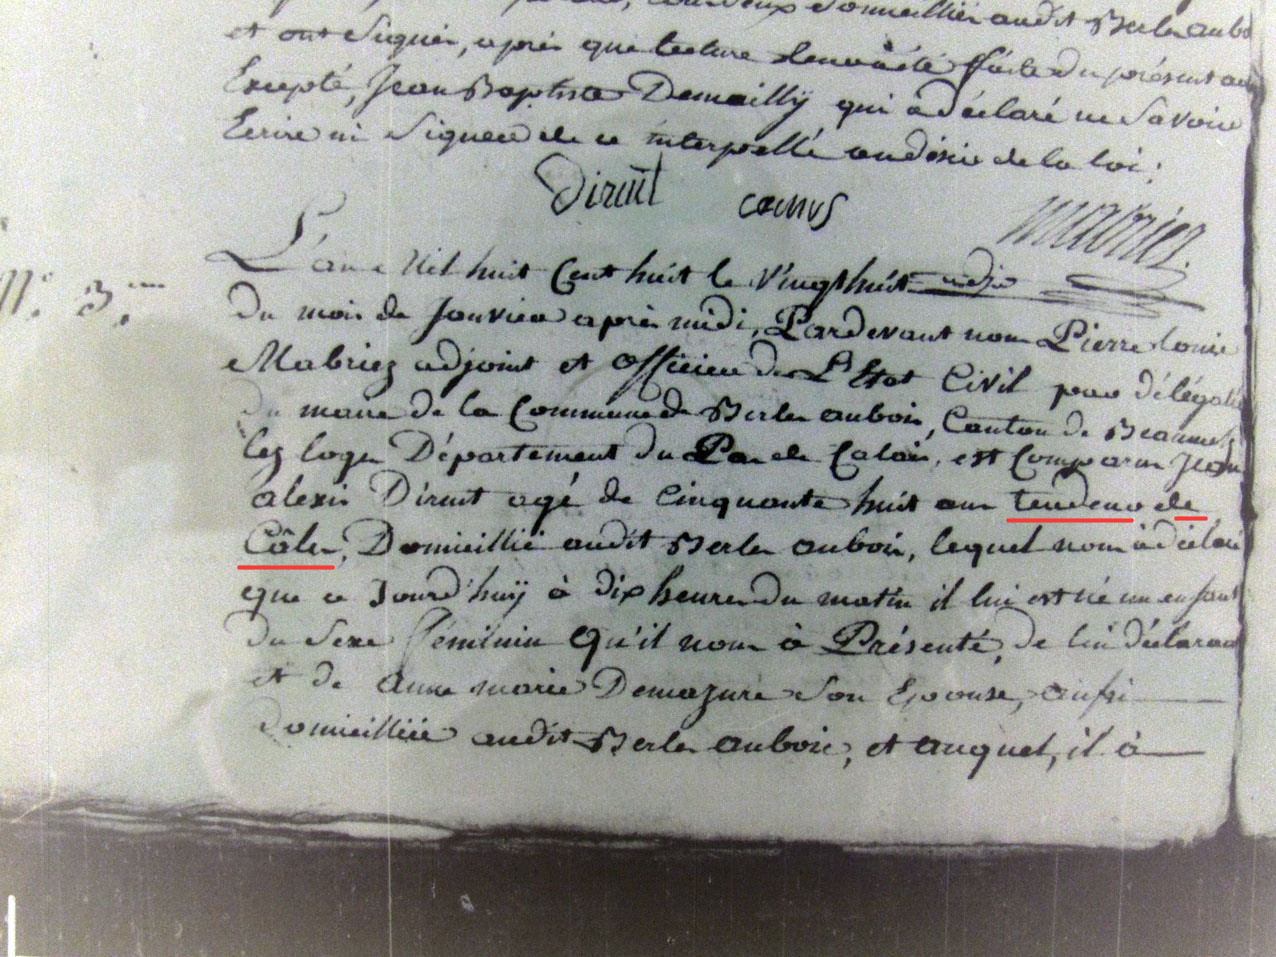 audit Berles aubois
et ont Signés, après que lecture leur a été faite du présent acte
Excepté, Jean Baptiste Demailly qui a déclaré ne Savoir
Ecrire ni Signer de ce interpellé au désir de la loi;
Diruit camus mabriez
N.° 3.
L'an Mil huit Cent huit le Vingt huit
du mois de Janvier après midi, Pardevant nous Pierre Louis
Mabriez adjoint et officier de L'Etat Civil par délégation
du maire de la Commune de Berles aubois, Canton de Beaumetz
lez loges Département du Pas de Calais, est Comparu Jean
alexis Diruit agé de cinquante huit ans tendeur de
Côler, Domicillié audit Berles aubois, lequel nous à déclaré
que ce Jourd'huÿ à dix heures du matin il lui est né un enfant
du Sexe féminin Qu'il nous à Présenté, de lui déclarant
et de anne marie Demazure Son Epouse, ainsi
domicilliée audit Berles aubois, et auquel, il à